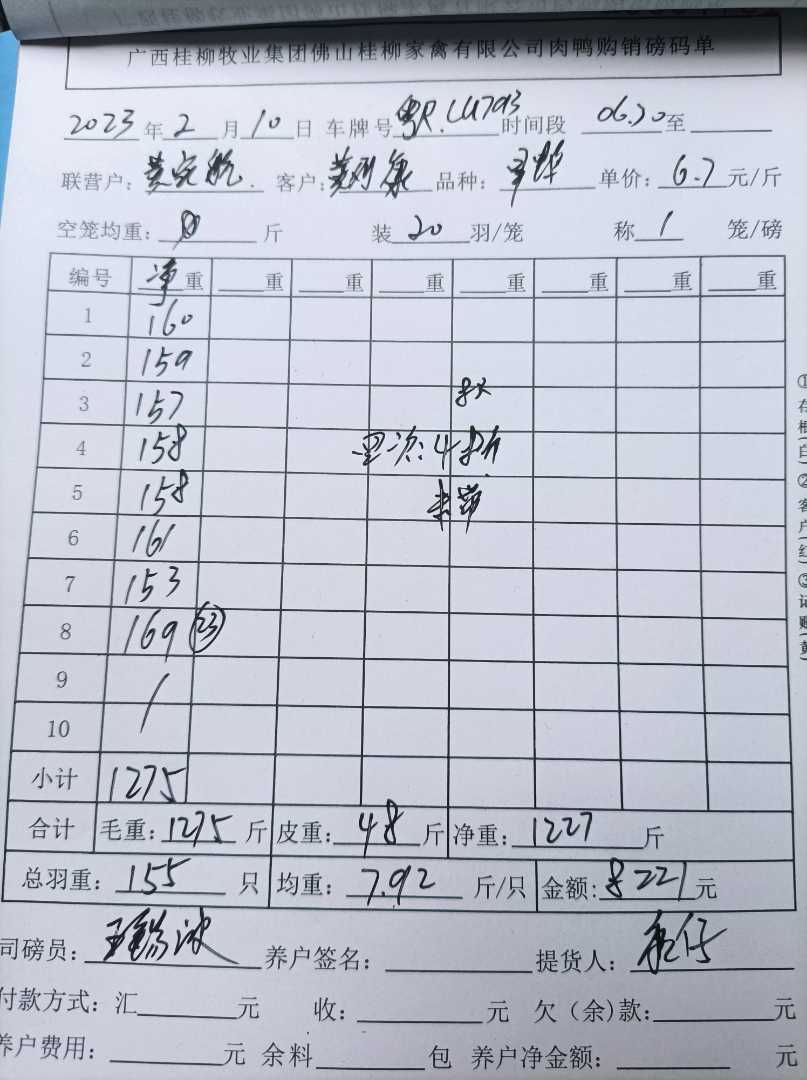 广西桂柳牧业集团佛山桂柳家禽有限公司肉鸭购销磅码单
2023年2月10日 车牌号粤R.LU793 时间段 06.20至
联营户: 客户: 品种: 单价: 6.7元/斤
空笼均重: 斤 装20羽/笼 称1笼/磅
编号 净重 重 重 重 重 重 重 重
1 160
2 159
3 157
4 158
5 158
6 161
7 153
8 169 23
9
10
小计 1275
合计 毛重: 1275斤 皮重: 48斤 净重: 1227斤
总羽重: 155只 均重: 7.92斤/只 金额: 8221元
司磅员: 养户签名: 提货人:
付款方式: 汇 元 收: 元 欠(余)款: 元
养户费用: 元 余料 包 养户净金额: 元
①存根(白)②客户(红)③记账(黄)